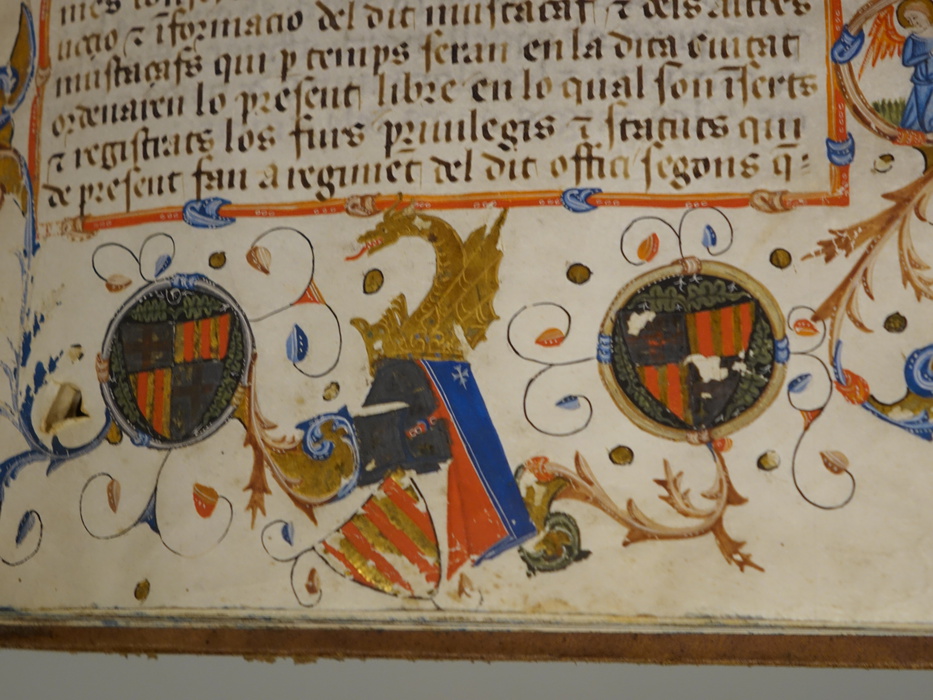 ucio ⁊ īformacio del dit mustaçaf ⁊ dels altres
mustaçafs qui p temps seran en la dita ciutat
ordenaren lo present libre en lo qual son īserts
⁊ registrats los furs priuilegis ⁊ statuts qui
de present fan a regimēt del dit offici segons q̄